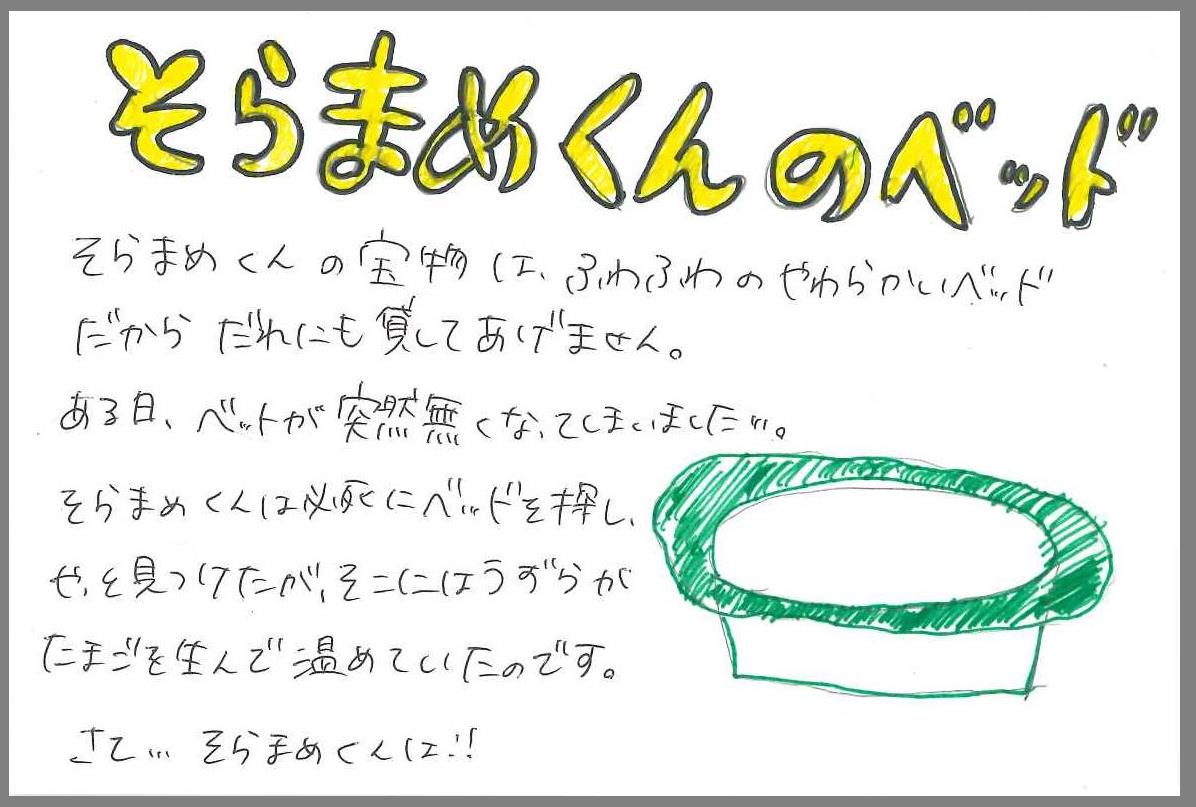 そらまめくんのベッド
そらまめくんの宝物は、ふわふわのやわらかいベッド
だから だれにも貸してあげません。
ある日、ベットが突然無くなってしまいました…。
そらまめくんは必死にベッドを探し、
やっと見つけたが、そこにはうずらが
たまごを生んで温めていたのです。
さて… そらまめくんは!!